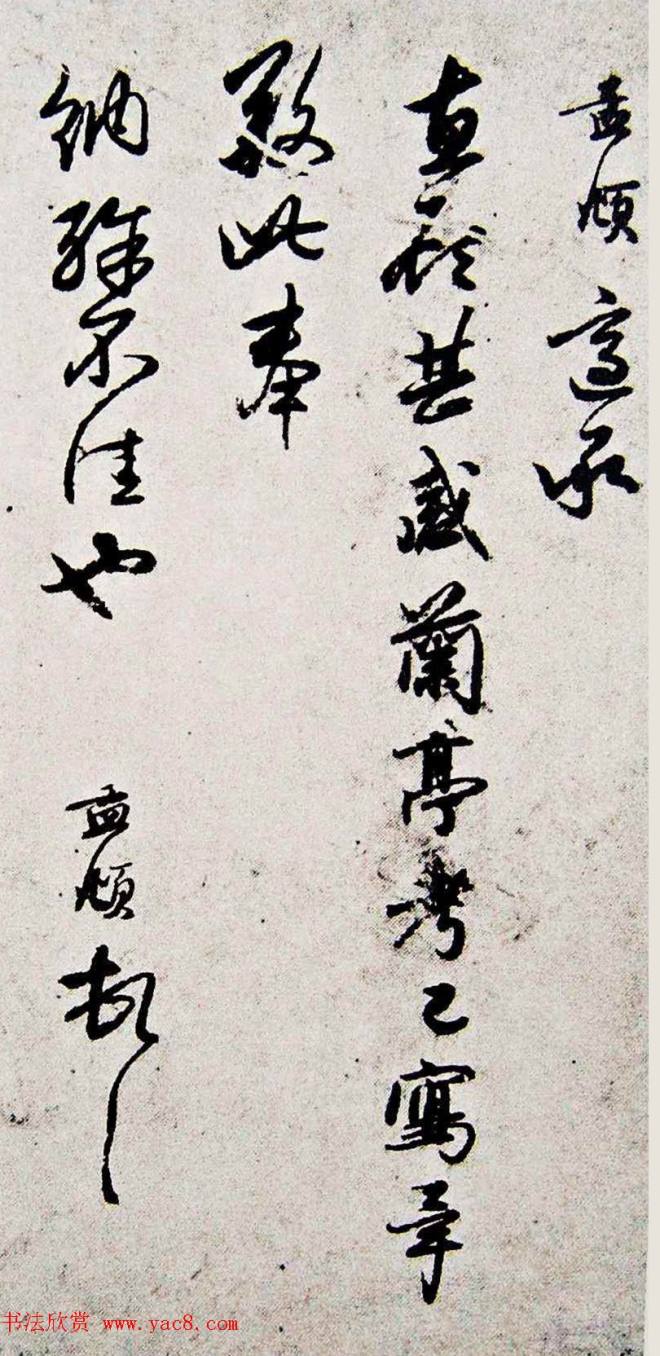 孟頫適承
惠顧甚感蘭亭考已寫幸
毀此奉
納殊不佳也 孟頫頓首
书法欣赏 www.yac8.com